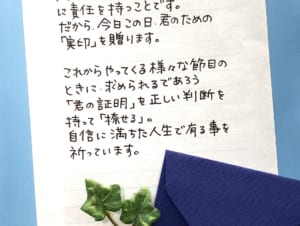 に責任を持つことです。
だから、今日この日、君のための
「実印」を贈ります。
これからやってくる様々な節目の
ときに、求められるであろう
「君の証明」を正しい判断を
持って「捺せる」。
自信に満ちた人生で有る事を
祈っています。